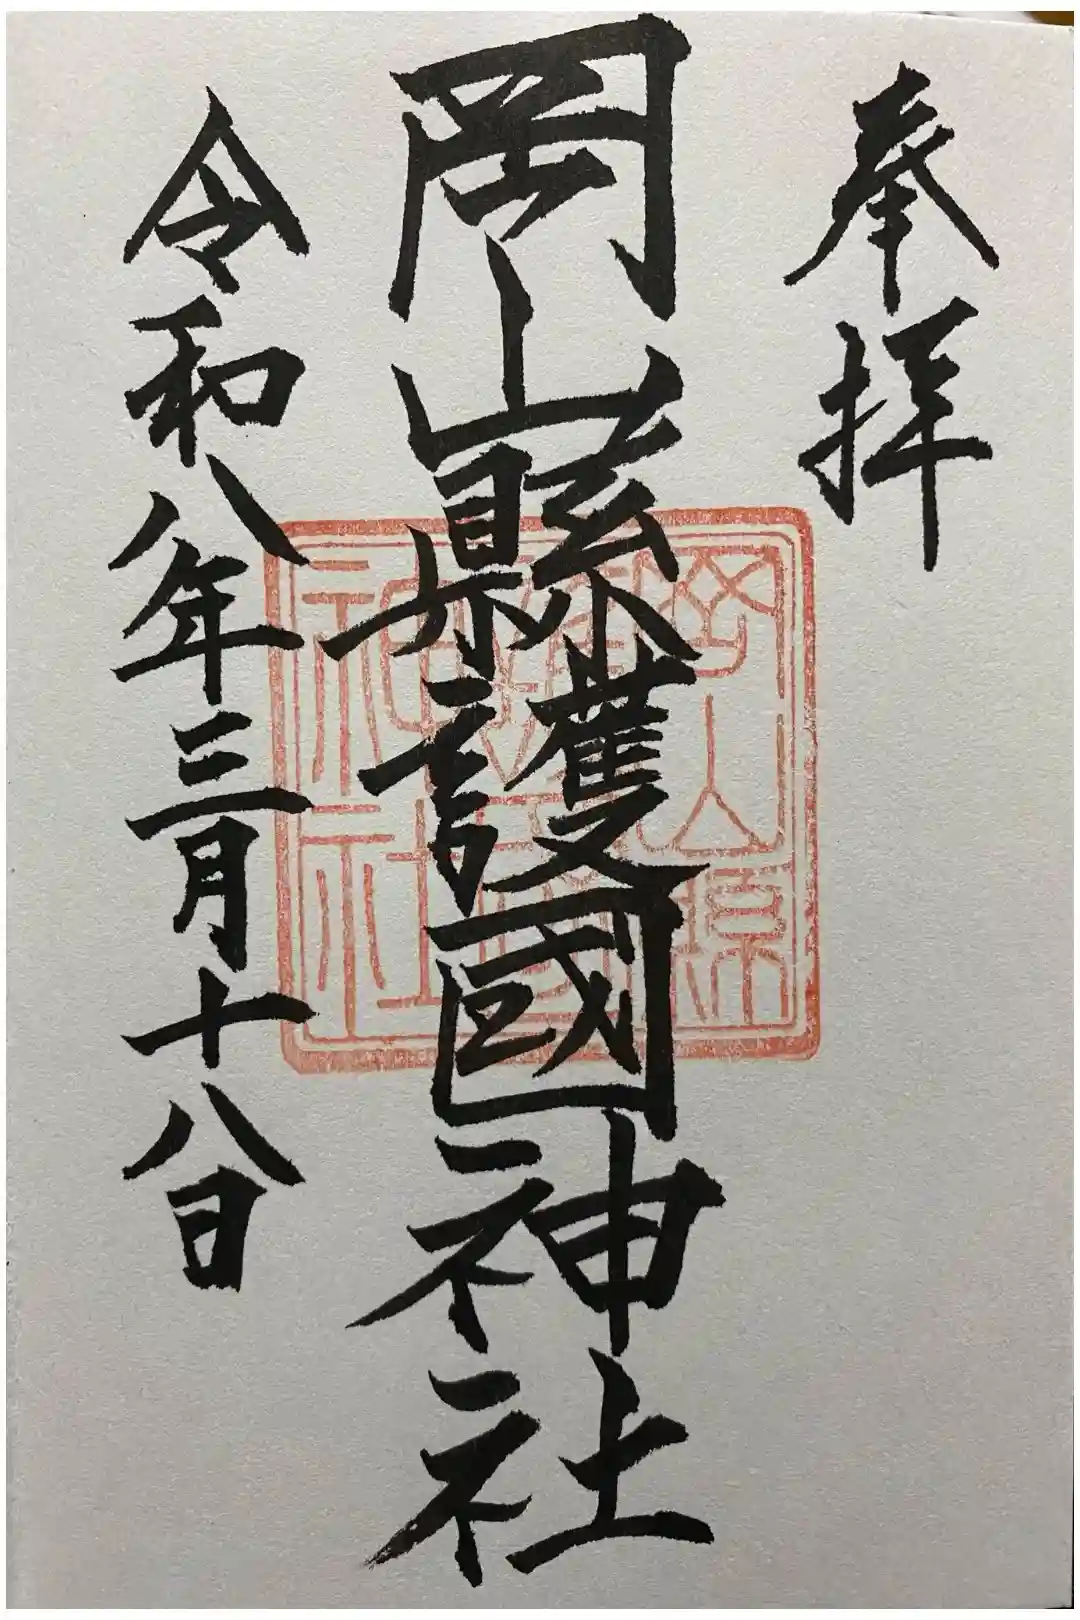 奉拝
岡山縣護國神社
令和八年三月十八日
岡山縣
護國
神社